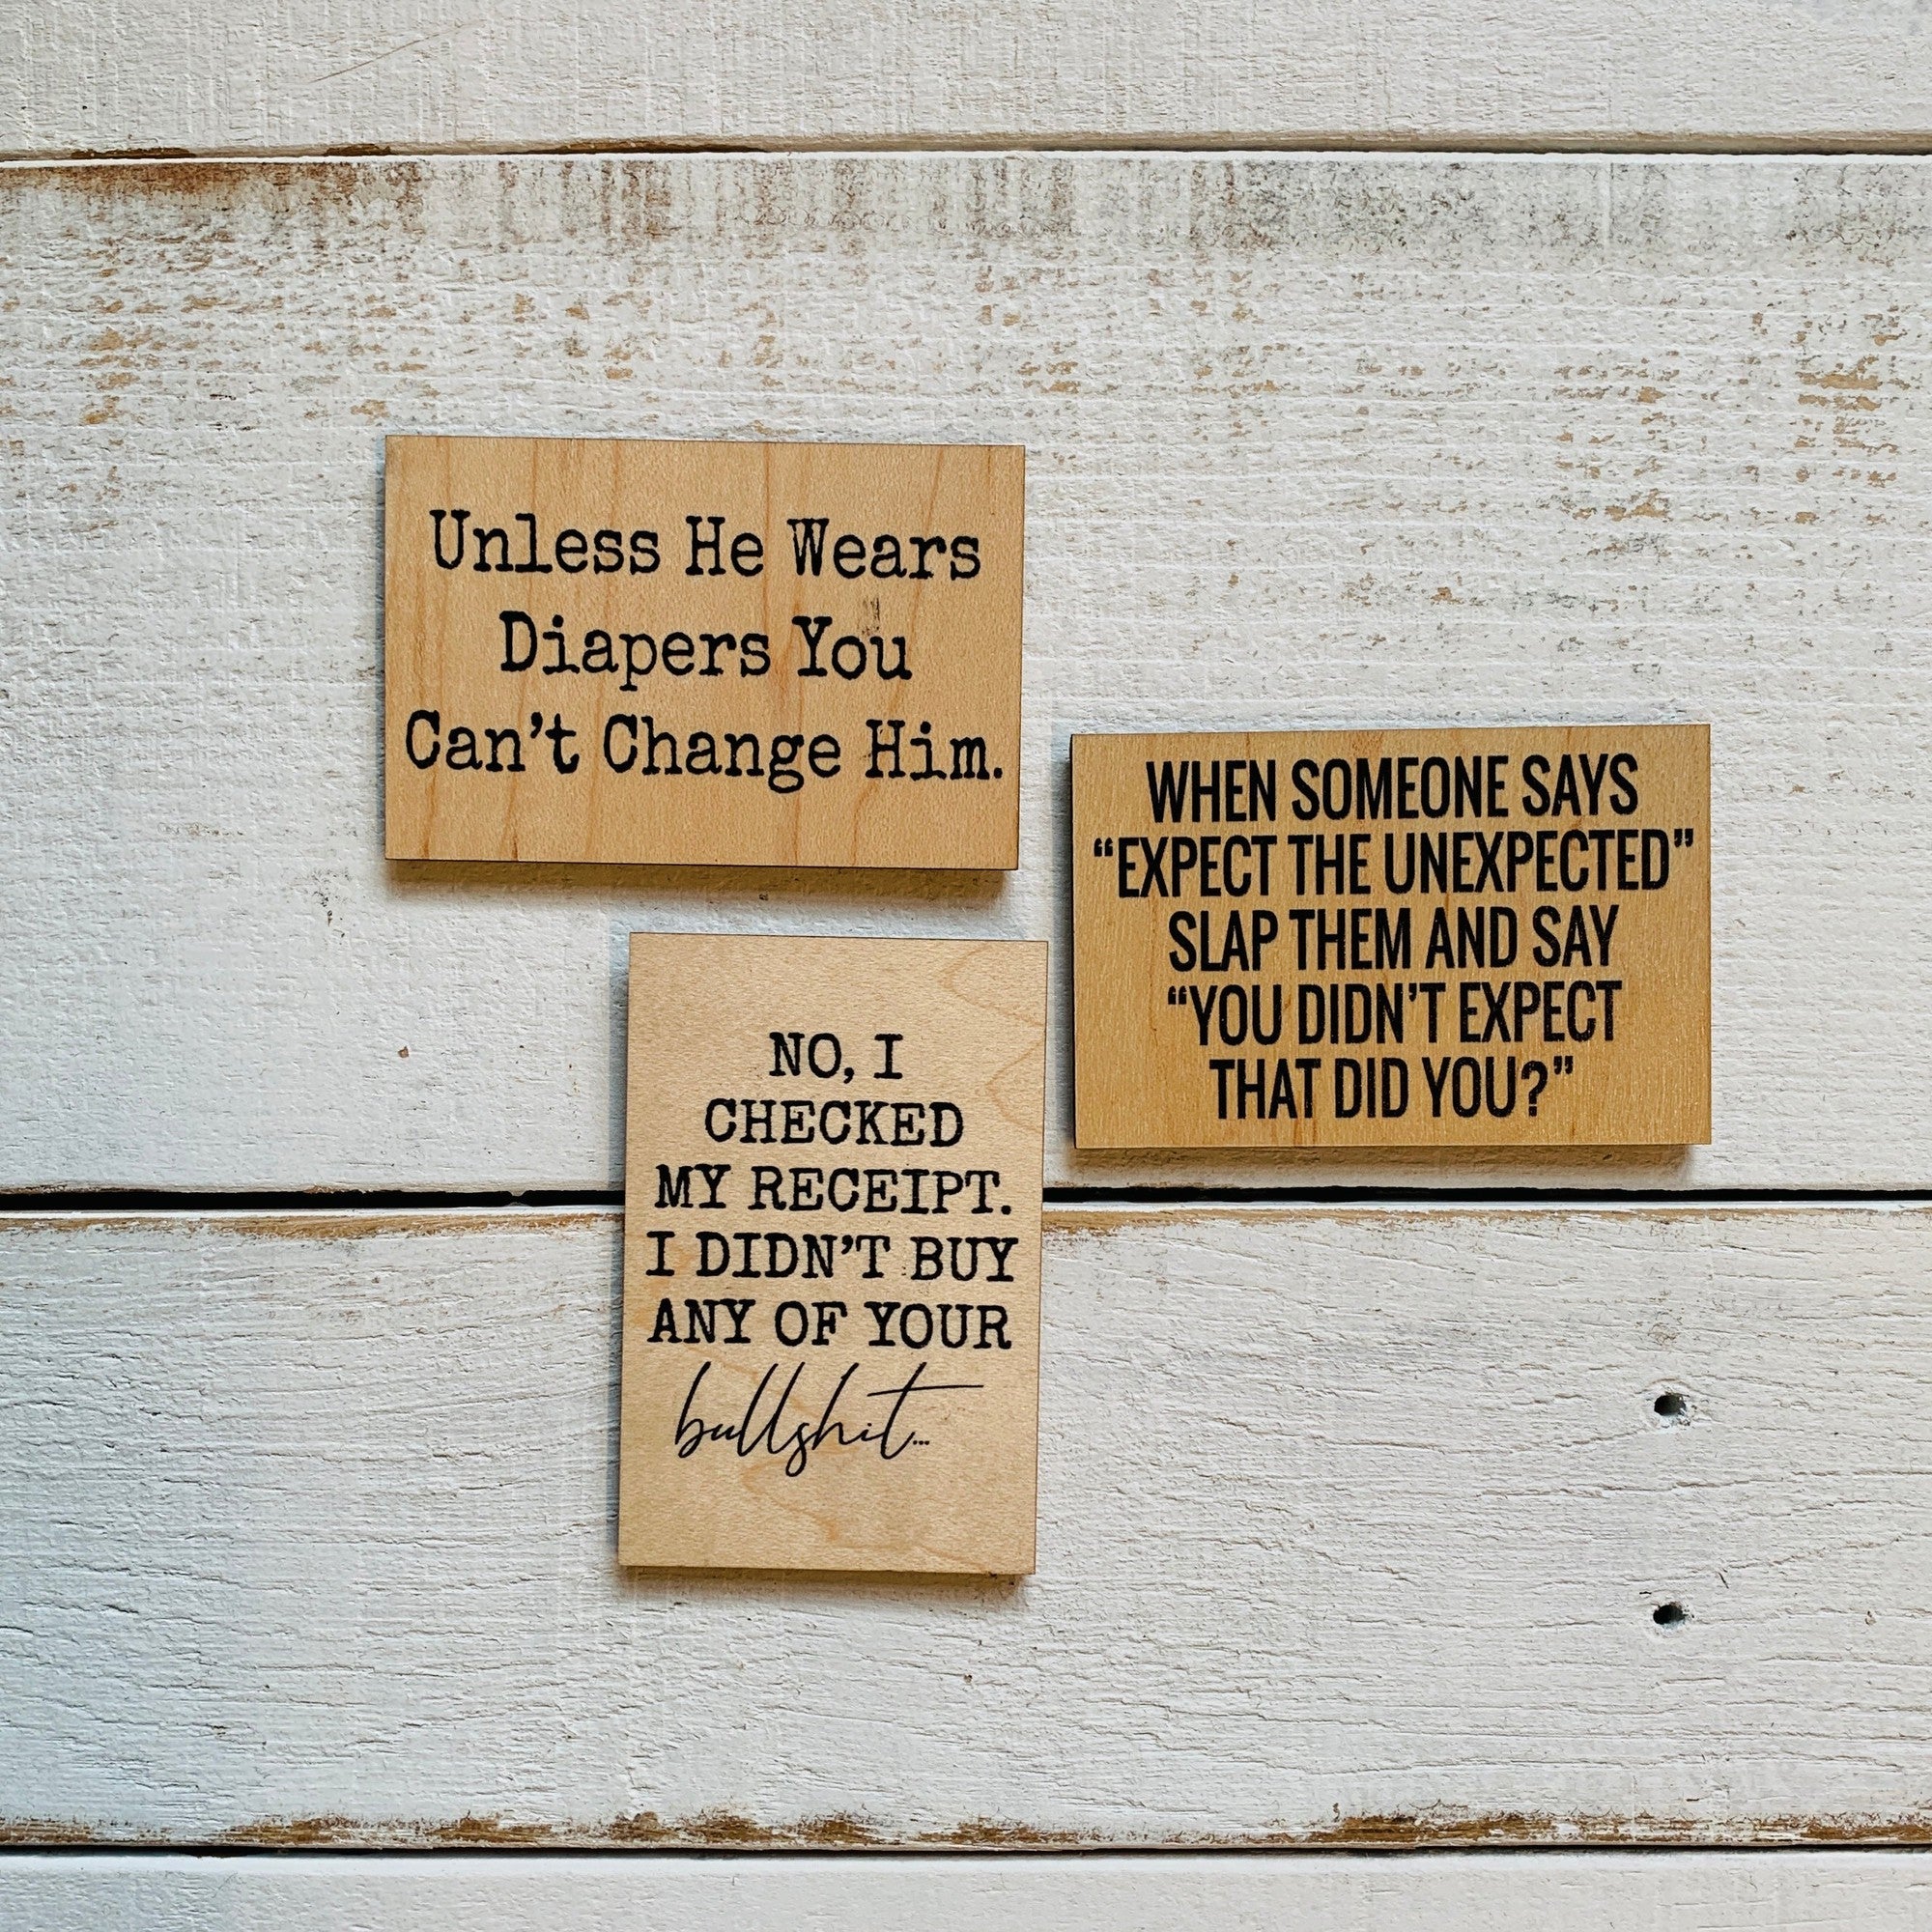 Unless He Wears
Diapers You
Can't Change Him.
WHEN SOMEONE SAYS
“EXPECT THE UNEXPECTED”
SLAP THEM AND SAY
“YOU DIDN’T EXPECT
THAT DID YOU?”
NO, I
CHECKED
MY RECEIPT.
I DIDN’T BUY
ANY OF YOUR
bullshit...